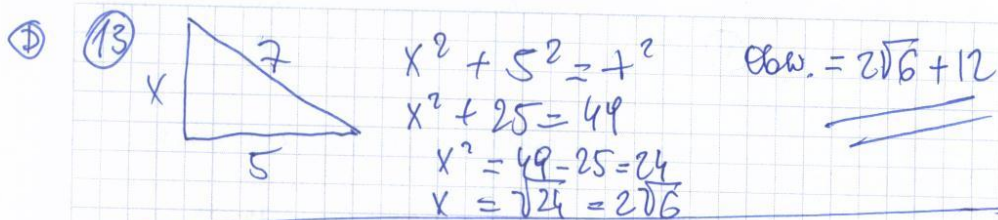 D 13
7
x
5
x² + 5² = 7²
x² + 25 = 49
x² = 49 - 25 = 24
x = √24 = 2√6
Obw. = 2√6 + 12